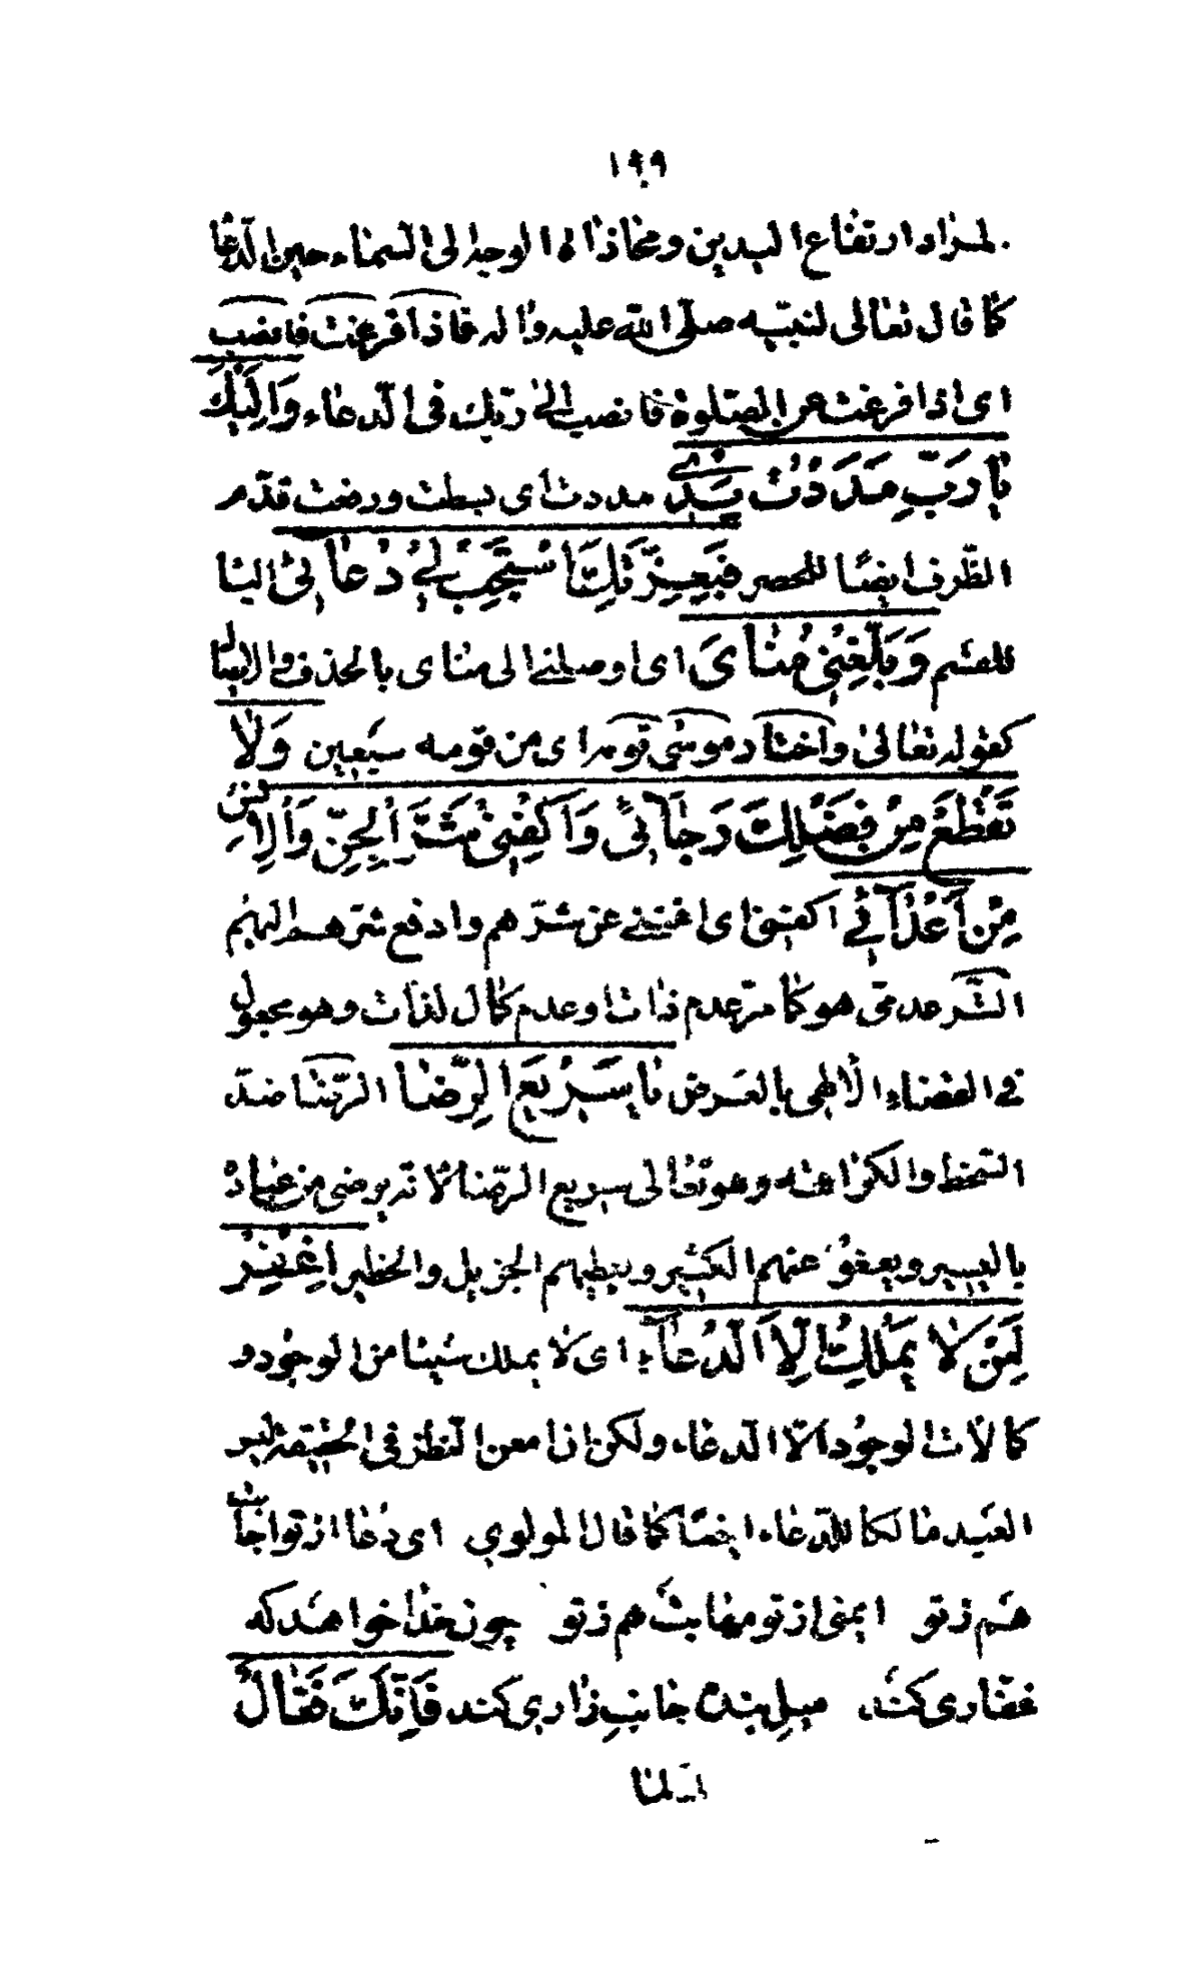 ١٩٩
لمراد ارتفاع اليدين ومحاذاة الوجه الى السماء حين الدعا
كما قال تعالى لنبيّه صلّى اللّه عليه واله فاذا فرغت فانصب
اى اذا فرغت عن الصّلوة فانصب الى ربّك فى الدّعاء وَاِلَيْكَ
يا رَبِّ مَدَدْتُ يَدى مددت اى بسطت ورفعت قدّم
الظّرف ايضًا للحصر فَبِعِزَّتِكَ اسْتَجِبْ لى دُعائى الباء
للقسم وَبَلِّغْنى مُناىَ اى اوصلنى الى مناى بالحذف والايصال
كقوله تعالى واختار موسى قومه اى من قومه سبعين وَلا
تَقْطَعْ مِنْ فَضْلِكَ رَجائى وَاكْفِنى شَرَّ الْجِنِّ وَالْاِنْسِ
مِنْ اَعْدائى اكفنى اى اغننى عن شرّهم وادفع شرّهم اليهم
الشّر عدمى هو كما مرّ عدم ذات او عدم كمال لذات وهو مجعول
فى القضاء الالهى بالعرض يا سَريعَ الرِّضا الرّضا ضدّ
السّخط والكراهة وهو تعالى سريع الرّضا لانّه يرضى من عباده
باليسير ويعفو عنهم الكثير ويعطيهم الجزيل والخطير اِغْفِرْ
لِمَنْ لا يَمْلِكُ اِلاَّ الدُّعاءَ اى لا يملك شيئا من الوجود و
كمالات الوجود الّا الدعاء ولكن اذا معن النظر فى الحقيقة ليس
العبد مالكا للدّعاء ايضًا كما قال المولوى اى دعا از تو اجابت
هم ز تو ايمنى از تو مهابت هم ز تو چون خدا خواهد كه
غفّارى كند ميل بنده جانب زارى كند فَاِنَّكَ فَعّالٌ
لما